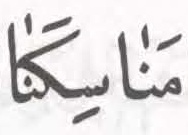 مَنٰاسِكَنٰا